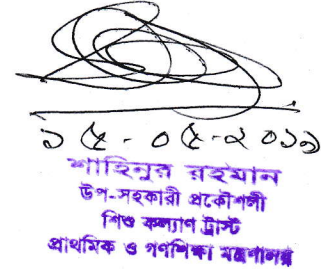 ১৫-০৫-২০১৯
শাহিনুর রহমান
উপ-সহকারী প্রকৌশলী
শিশু কল্যাণ ট্রাস্ট
প্রাথমিক ও গণশিক্ষা মন্ত্রণালয়